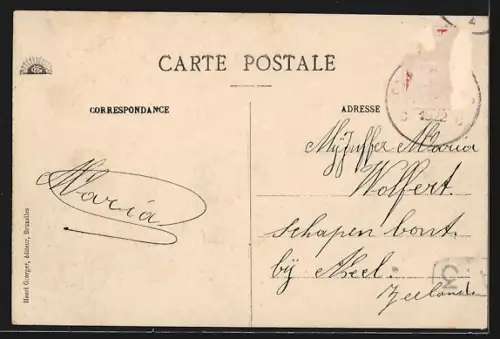 CARTE POSTALE
CORRESPONDANCE
ADRESSE
Maria
Mejuffer Maria
Wolfert.
schapen bout.
bij Axel.
Zeeland
Henri Georges, éditeur, Bruxelles